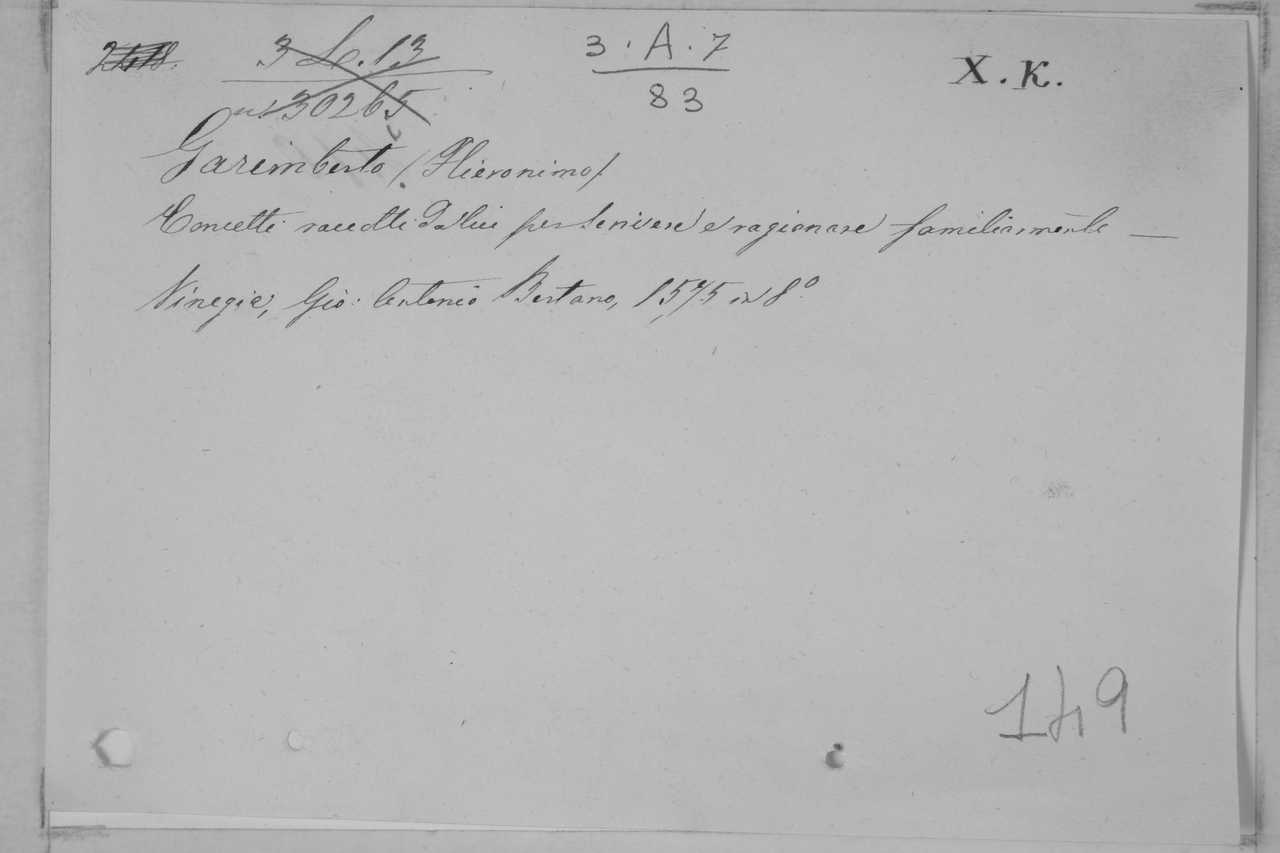 3 L. 13
3 . A . 7
83
X. K.
30265
Garimberto (Hieronimo)
Concetti raccolti da lui per scrivere e ragionare familiarmente —
Vinegia, Gio: Antonio Bertano, 1575 in 8º
149